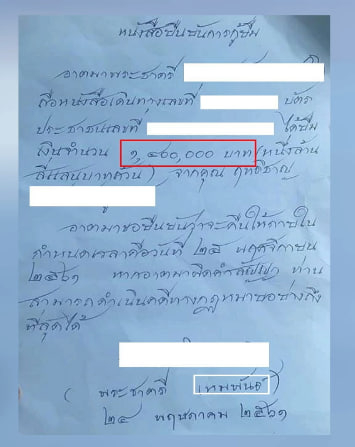 หนังสือยืนยันการกู้ยืม
อาตมาพระชาตรี
ถือหนังสือเดินทางเลขที่ บัตร
ประชาชนเลขที่ ได้ยืม
เงินจำนวน ๑,๔๐๐,๐๐๐ บาท (หนึ่งล้าน
สี่แสนบาทถ้วน) จากคุณ
อาตมาขอยืนยันว่าจะคืนให้ภายใน
กำหนดเวลาคือวันที่ ๒๕ พฤศจิกายน
๒๕๖๑ หากอาตมาผิดคำสัญญา ท่าน
สามารถดำเนินคดีทางกฎหมายอย่างถึง
ที่สุดได้
( พระชาตรี เหมพันธ์ )
๒๔ พฤษภาคม ๒๕๖๑